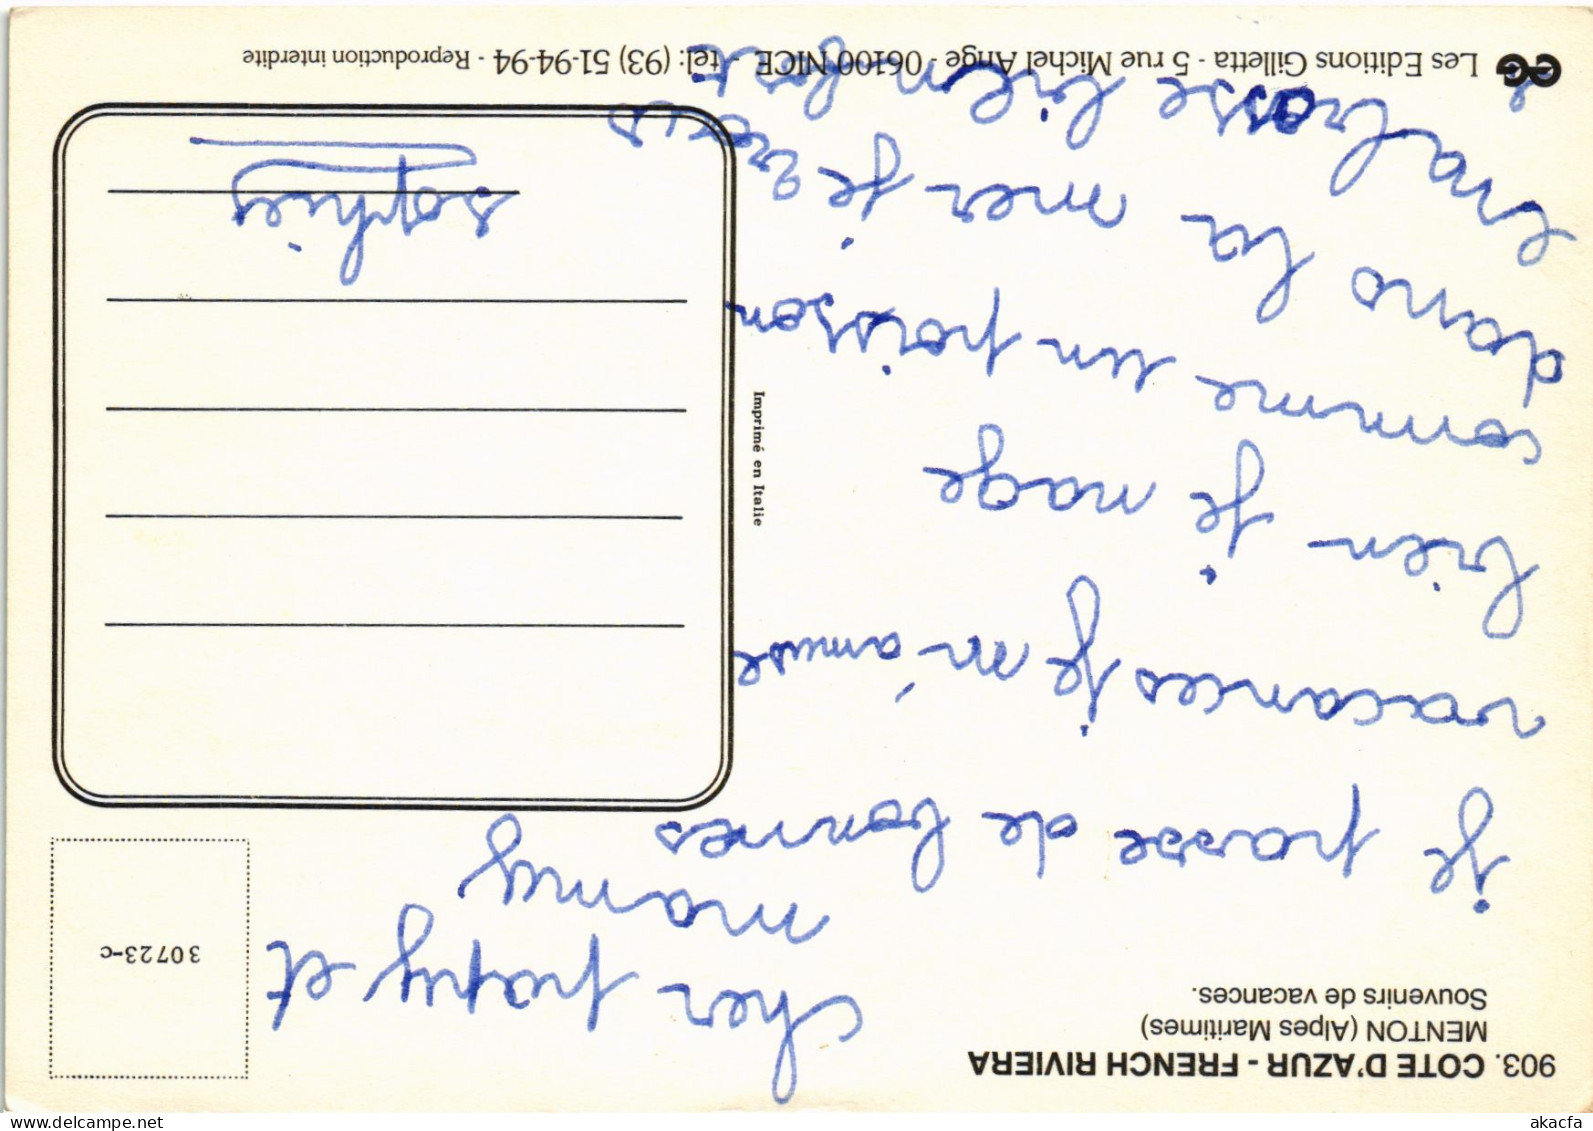 903. COTE D'AZUR - FRENCH RIVIERA
MENTON (Alpes Maritimes)
Souvenirs de vacances.
30723-c
cher papy et
mamy
je passe de bonnes
vacances je m'amuse
bien je nage
comme un poisson
dans la mer je vous
embrasse bien fort
sophie
Imprimé en Italie
EG Les Editions Gilletta - 5 rue Michel Ange - 06100 NICE - tél: (93) 51-94-94 - Reproduction interdite
akacfa
delcampe.net